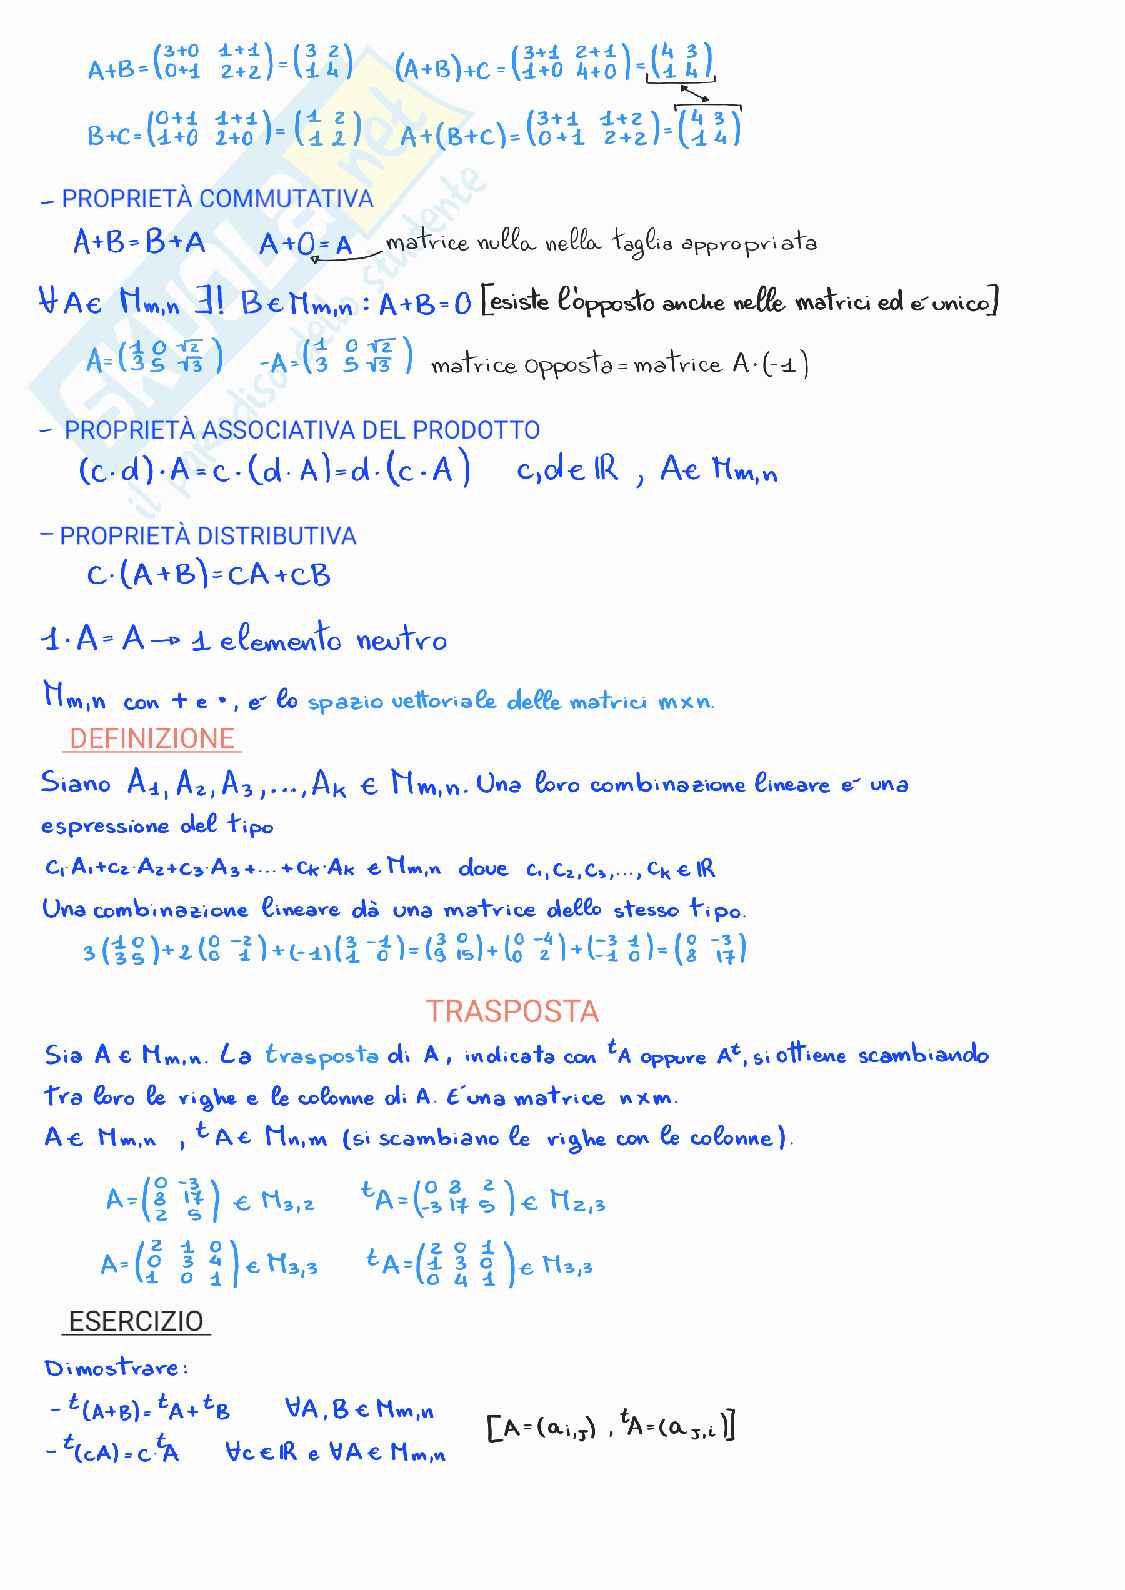 A+B=(3+0 1+1 0+1 2+2)=(3 2 1 4) (A+B)+C=(3+1 2+1 1+0 4+0)=(4 3 1 4)
B+C=(0+1 1+1 1+0 2+0)=(1 2 1 2) A+(B+C)=(3+1 1+2 0+1 2+2)=(4 3 1 4)
- PROPRIETÀ COMMUTATIVA
A+B=B+A A+O=A matrice nulla nella taglia appropriata
∀A∈ Mm,n ∃! B∈Mm,n : A+B=O [esiste l'opposto anche nelle matrici ed é unico]
A=(1 0 √2 3 5 √3) -A=(1 0 √2 3 5 √3) matrice opposta=matrice A·(-1)
- PROPRIETÀ ASSOCIATIVA DEL PRODOTTO
(c·d)·A=c·(d·A)=d·(c·A) c,d∈ℝ , A∈ Mm,n
- PROPRIETÀ DISTRIBUTIVA
c·(A+B)=cA+cB
1·A=A→1 elemento neutro
Mm,n con + e ·, é lo spazio vettoriale delle matrici m×n.
DEFINIZIONE
Siano A1, A2, A3,...,Ak ∈ Mm,n. Una loro combinazione lineare é una
espressione del tipo
c1·A1+c2·A2+c3·A3+...+ck·Ak ∈Mm,n dove c1,c2,c3,...,ck∈ℝ
Una combinazione lineare dà una matrice dello stesso tipo.
3(1 0 3 5)+2(0 -2 0 1)+(-1)(3 -1 1 0)=(3 0 9 15)+(0 -4 0 2)+(-3 1 -1 0)=(0 -3 8 17)
TRASPOSTA
Sia A∈ Mm,n. La trasposta di A, indicata con ᵗA oppure Aᵗ, si ottiene scambiando
tra loro le righe e le colonne di A. É una matrice n×m.
A∈ Mm,n , ᵗA∈ Mn,m (si scambiano le righe con le colonne).
A=(0 -3 8 17 2 5) ∈ M3,2 ᵗA=(0 8 2 -3 17 5)∈ M2,3
A=(2 1 0 0 3 4 1 0 1)∈M3,3 ᵗA=(2 0 1 1 3 0 0 4 1)∈ M3,3
ESERCIZIO
Dimostrare:
- ᵗ(A+B)=ᵗA+ᵗB ∀A,B∈Mm,n
[A=(ai,j) , ᵗA=(aj,i)]
- ᵗ(cA)=c·ᵗA ∀c∈ℝ e ∀A∈ Mm,n
SKUOLA.net
il paradiso dello studente